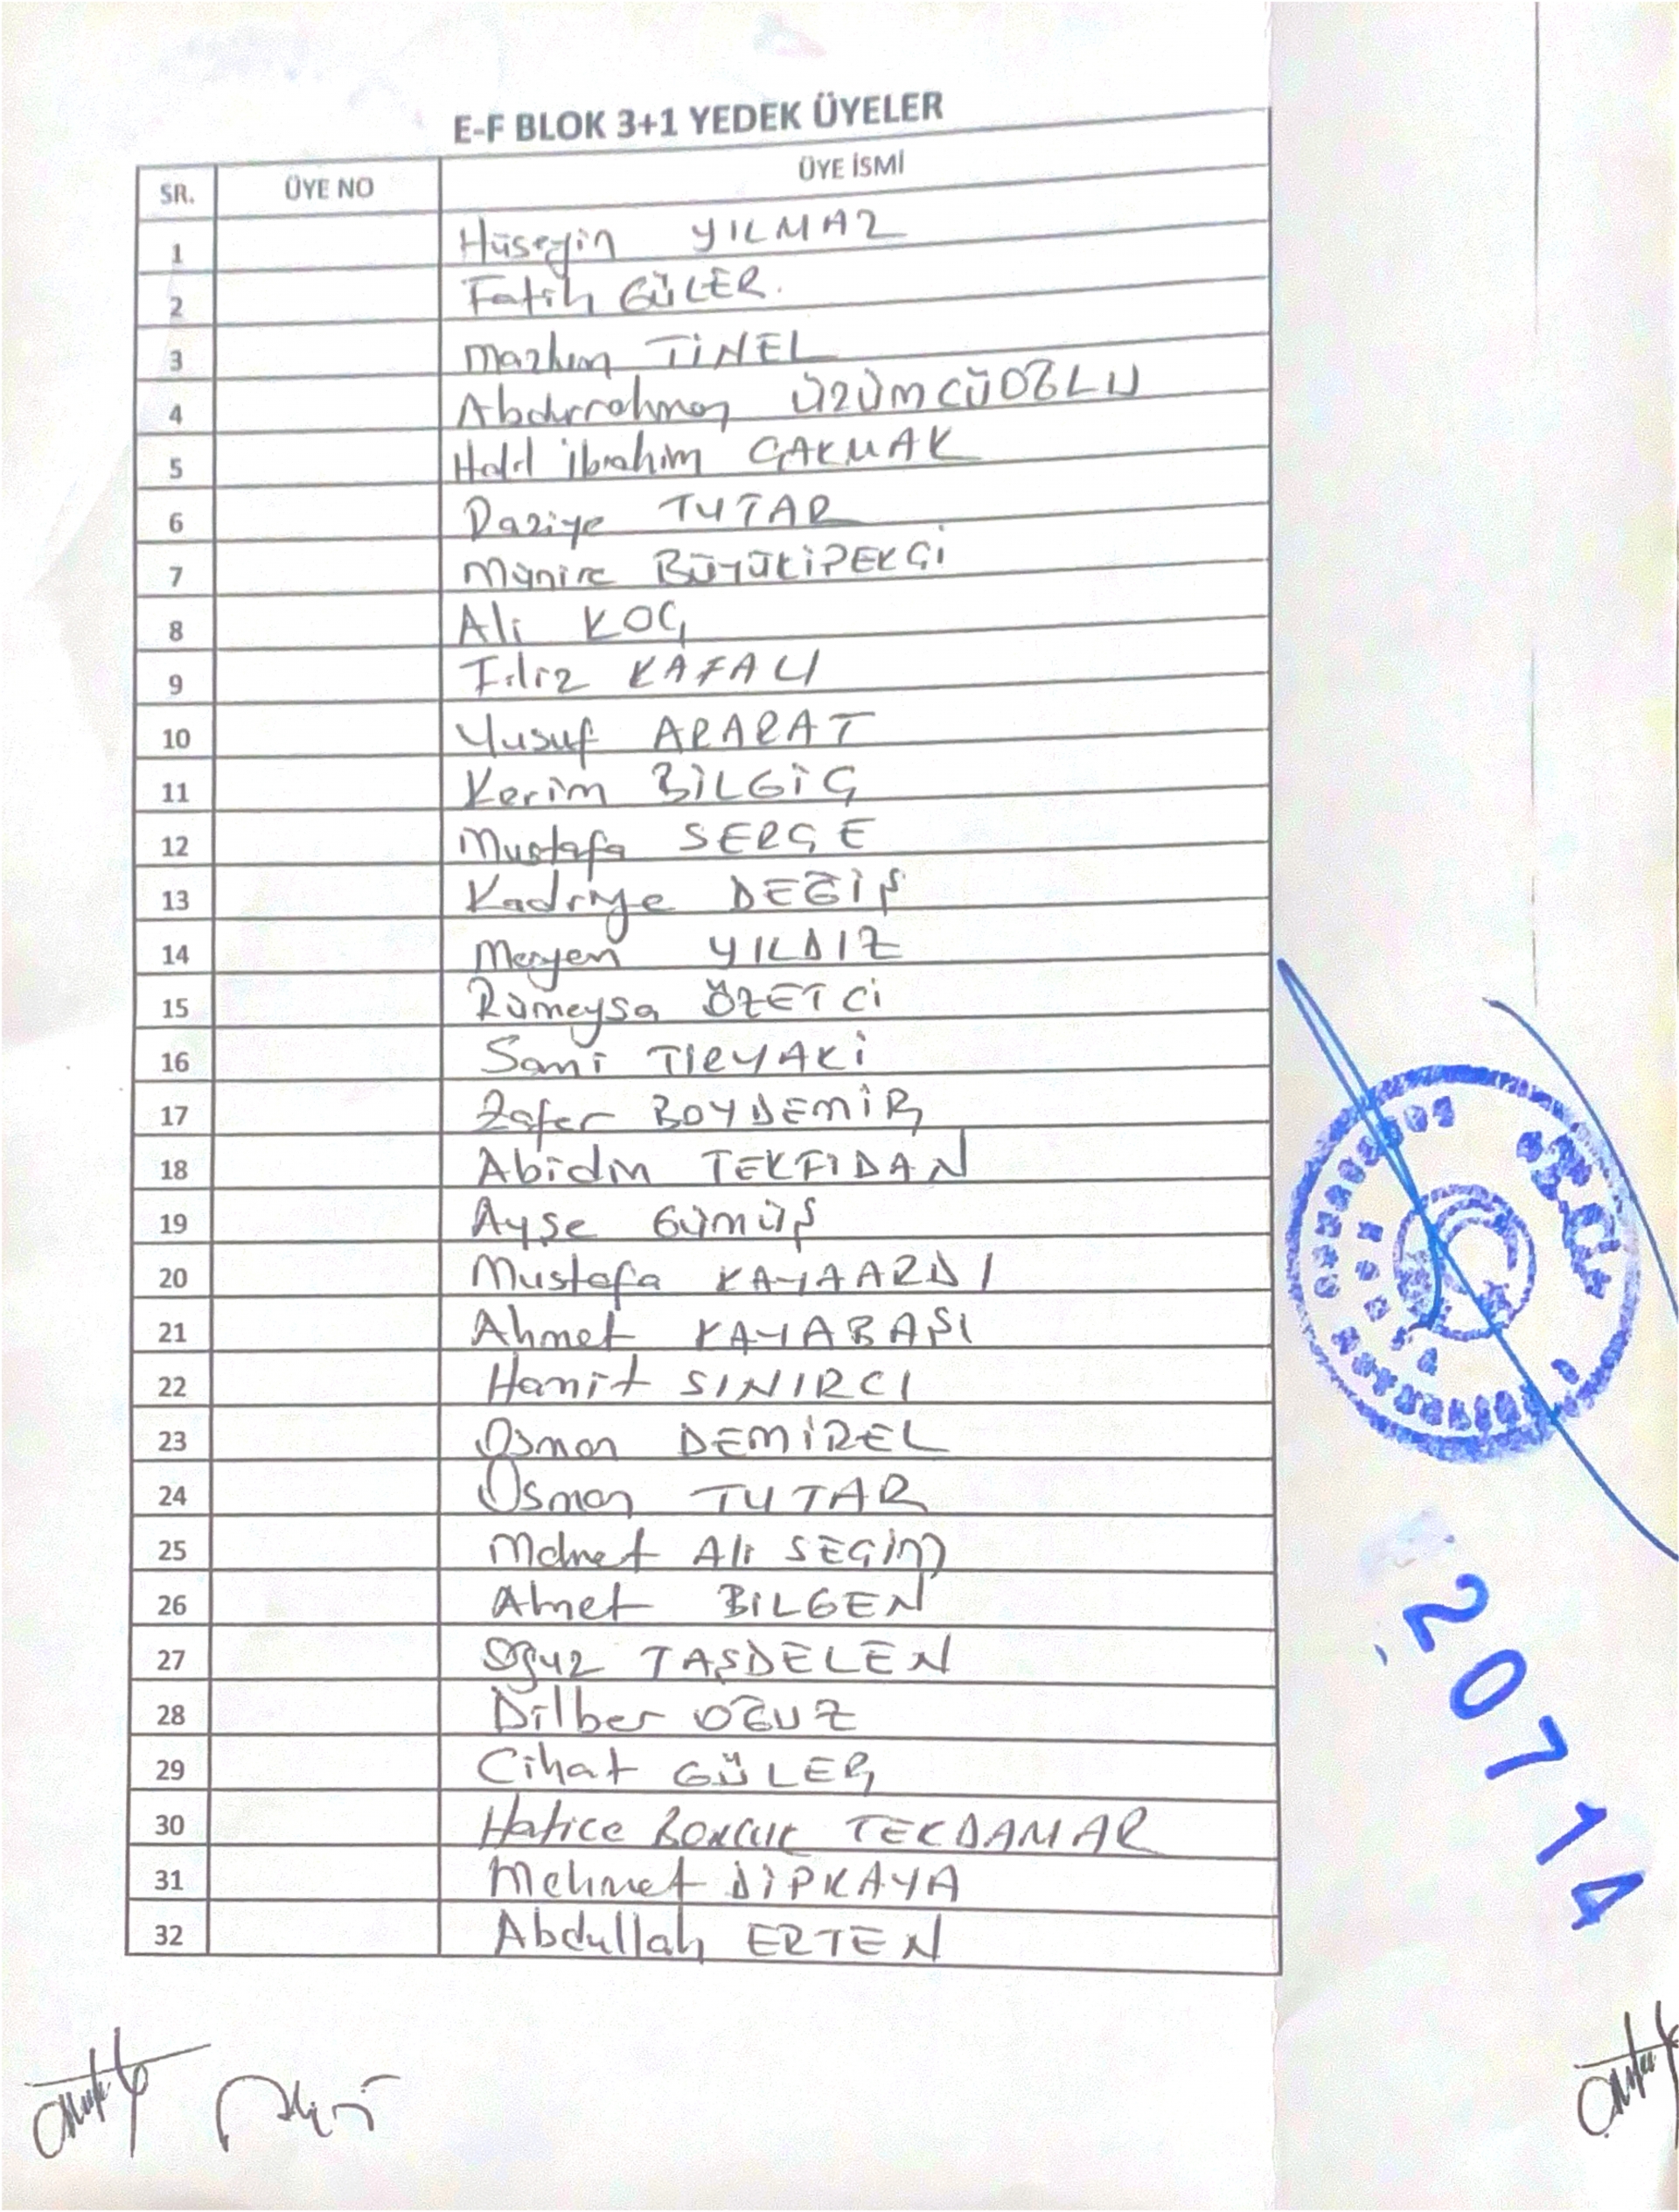 E-F BLOK 3+1 YEDEK ÜYELER
SR. ÜYE NO ÜYE İSMİ
1 Hüseyin YILMAZ
2 Fatih GÜLER.
3 Mazlum TİNEL
4 Abdurrahman ÜZÜMCÜOĞLU
5 Halil İbrahim ÇAKMAK
6 Raziye TUTAR
7 Münire BÜYÜKİPEKÇİ
8 Ali KOÇ
9 Filiz KAFALI
10 Yusuf ARARAT
11 Kerim BİLGİÇ
12 Mustafa SERÇE
13 Kadriye DEĞİŞ
14 Meryem YILDIZ
15 Rümeysa ÖZETCİ
16 Sami TİRYAKİ
17 Zafer BOYDEMİR
18 Abidin TEKFİDAN
19 Ayşe GÜMÜŞ
20 Mustafa KAYAARDI
21 Ahmet KAYABAŞI
22 Hamit SINIRCI
23 Osman DEMİREL
24 Osman TUTAR
25 Mehmet Ali SEÇİM
26 Ahmet BİLGEN
27 Oğuz TAŞDELEN
28 Dilber OĞUZ
29 Cihat GÜLER
30 Hatice BONCUK TEKDAMAR
31 Mehmet DİPKAYA
32 Abdullah ERTEN
20714